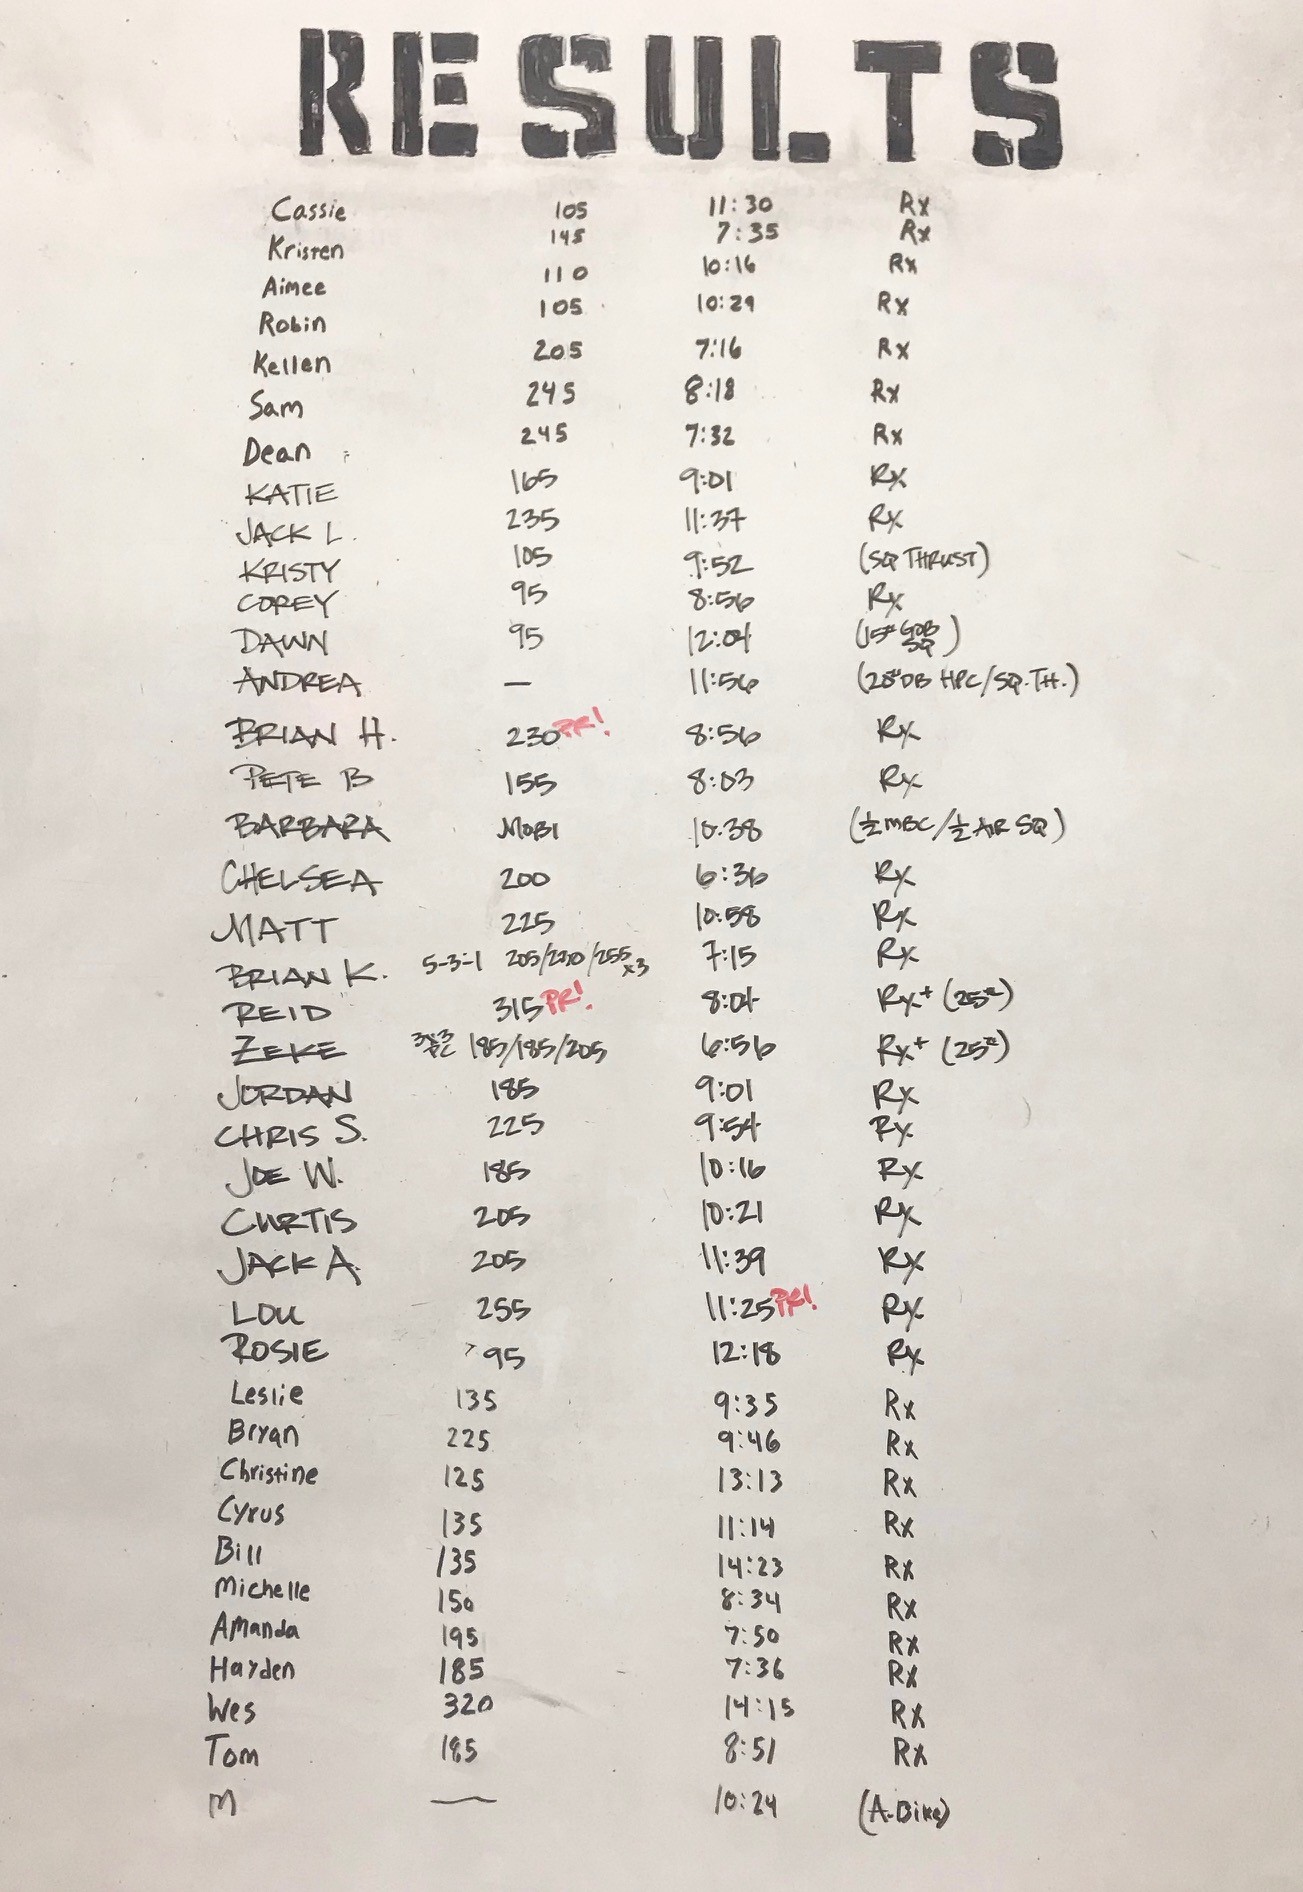 RESULTS
Cassie 105 11:30 Rx
Kristen 145 7:35 Rx
Aimee 110 10:16 Rx
Robin 105 10:29 Rx
Kellen 205 7:16 Rx
Sam 245 8:18 Rx
Dean 245 7:32 Rx
KATIE 165 9:01 Rx
JACK L. 235 11:37 Rx
KRISTY 105 9:52 (SQ THRUST)
COREY 95 8:56 Rx
DAWN 95 12:04 (15# GOB SQ)
ANDREA — 11:56 (20# DB HPC/SQ.TH.)
BRIAN H. 230 PR! 8:56 Rx
PETE B 155 8:03 Rx
BARBARA MOBI 10:38 (½ MBC/½ AIR SQ)
CHELSEA 200 6:36 Rx
MATT 225 10:58 Rx
BRIAN K. 5-3-1 205/230/255 x3 7:15 Rx
REID 315 PR! 8:04 Rx+ (25#)
ZEKE 3x3 PC 185/185/205 6:56 Rx+ (25#)
JORDAN 185 9:01 Rx
CHRIS S. 225 9:54 Rx
JOE W. 185 10:16 Rx
CURTIS 205 10:21 Rx
JACK A. 205 11:39 Rx
LOU 255 11:25 PR! Rx
ROSIE 95 12:18 Rx
Leslie 135 9:35 Rx
Bryan 225 9:46 Rx
Christine 125 13:13 Rx
Cyrus 135 11:14 Rx
Bill 135 14:23 Rx
Michelle 150 8:34 Rx
Amanda 195 7:50 Rx
Hayden 185 7:36 Rx
Wes 320 14:15 Rx
Tom 185 8:51 Rx
M — 10:24 (A-Bike)